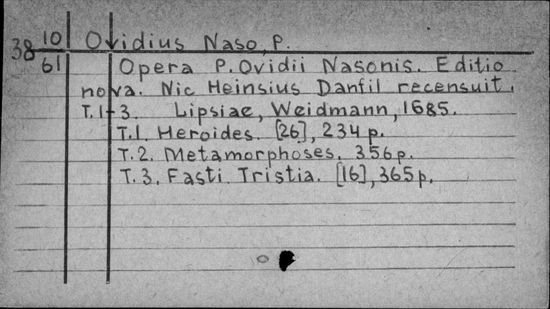 38 10/61 Ovidius Naso, P.
Opera P. Ovidii Nasonis. Editio
nova. Nic Heinsius Danfil recensuit.
T.1-3. Lipsiae, Weidmann, 1685.
T.1. Heroides. [26], 234 p.
T.2. Metamorphoses. 356 p.
T.3. Fasti. Tristia. [16], 365 p.